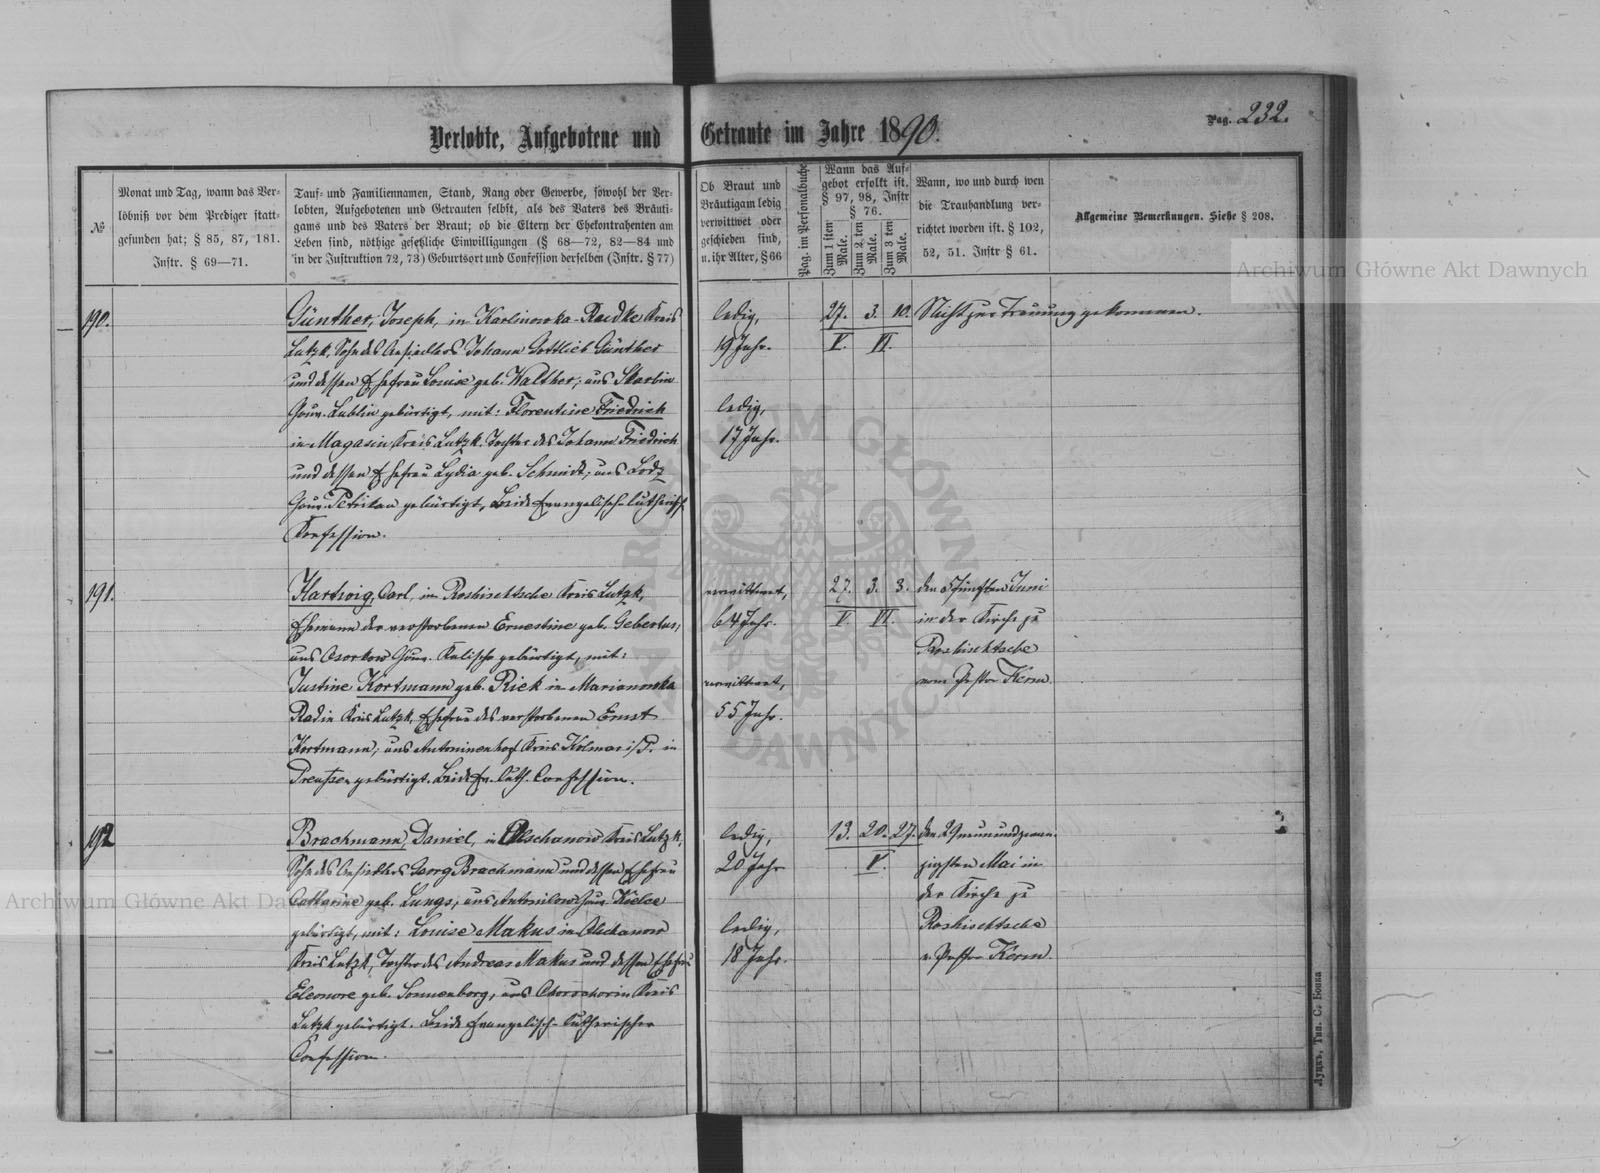 Verlobte, Aufgebotene und Getraute im Jahre 1890.
Pag. 232.
№
Monat und Tag, wann das Ver-
löbniß vor dem Prediger statt-
gefunden hat; § 85, 87, 181.
Instr. § 69—71.
Tauf- und Familiennamen, Stand, Rang oder Gewerbe, sowohl der Ver-
lobten, Aufgebotenen und Getrauten selbst, als des Vaters des Bräuti-
gams und des Vaters der Braut; ob die Eltern der Ehekontrahenten am
Leben sind, nöthige gesetzliche Einwilligungen (§ 68—72, 82—84 und
in der Instruktion 72, 73) Geburtsort und Confession derselben (Instr. § 77)
Ob Braut und
Bräutigam ledig
verwittwet oder
geschieden sind,
u. ihr Alter, § 66
Pag. im Personalbuche
Wann das Auf-
gebot erfolkt ist.
§ 97, 98, Instr
§ 76.
Zum 1 sten
Male.
Zum 2 ten
Male.
Zum 3 ten
Male.
Wann, wo und durch wen
die Trauhandlung ver-
richtet worden ist. § 102,
52, 51. Instr § 61.
Allgemeine Bemerkungen. Siehe § 208.
190.
Günther, Joseph, in Karlinowka-Radke Kreis
Lutzk, Sohn des Ansiedlers Johann Gottlieb Günther
und dessen Ehefrau Louise geb. Walther; aus Skarbin
Gouv. Lublin gebürtigt, mit: Florentine Friedrich
in Magasin, Kreis Lutzk. Tochter des Johann Friedrich
und dessen Ehefrau Lydia geb. Schmidt, aus Lodz
Gouv. Petrikau gebürtigt, Beide Evangelisch-lutherisch.
Konfession.
ledig,
19 Jahr.
ledig,
17 Jahr.
27. 3. 10.
V. VI.
Nicht zur Trauung gekommen.
191.
Hartwig, Carl, in Roshischtsche Kreis Lutzk,
Ehemann der verstorbenen Ernestine geb. Gebertus,
aus Osorkow Gouv. Kalisch gebürtigt, mit:
Justine Kortmann geb. Riek in Marianowka
Radin Kreis Lutzk, Ehefrau des verstorbenen Ernst
Kortmann, aus Antoninenhof Kreis Kolmar i/P. in
Preußen gebürtigt. Beide Ev. Luth. Confession.
verwittwet,
64 Jahr.
verwittwet,
55 Jahr.
27. 3. 3.
V. VI.
den 5 fünften Juni
in der Kirche zu
Roshischtsche
vom Pastor Kerm.
192
Brachmann, Daniel, in Olschanow Kreis Lutzk,
Sohn des Ansiedlers Georg Brachmann und dessen Ehefrau
Catharine geb. Lungs, aus Antonilow Gouv. Kielce
gebürtigt, mit: Louise Makus in Olschanow
Kreis Lutzk, Tochter des Andreas Makus und dessen Ehefrau
Eleonore geb. Sonnenberg, aus Kreis
Lutzk gebürtigt. Beide Evangelisch-lutherischer
Confession.
ledig,
20 Jahr
ledig,
18 Jahr.
13. 20. 27.
V.
den 29 neunundzwan-
zigsten Mai in
der Kirche zu
Roshischtsche
v. Pastor Kerm.
Луцкъ, Тип. С. Бокса
Archiwum Główne Akt Dawnych
Archiwum Główne Akt Dawnych
ARCHIWUM GŁÓWNE AKT DAWNYCH